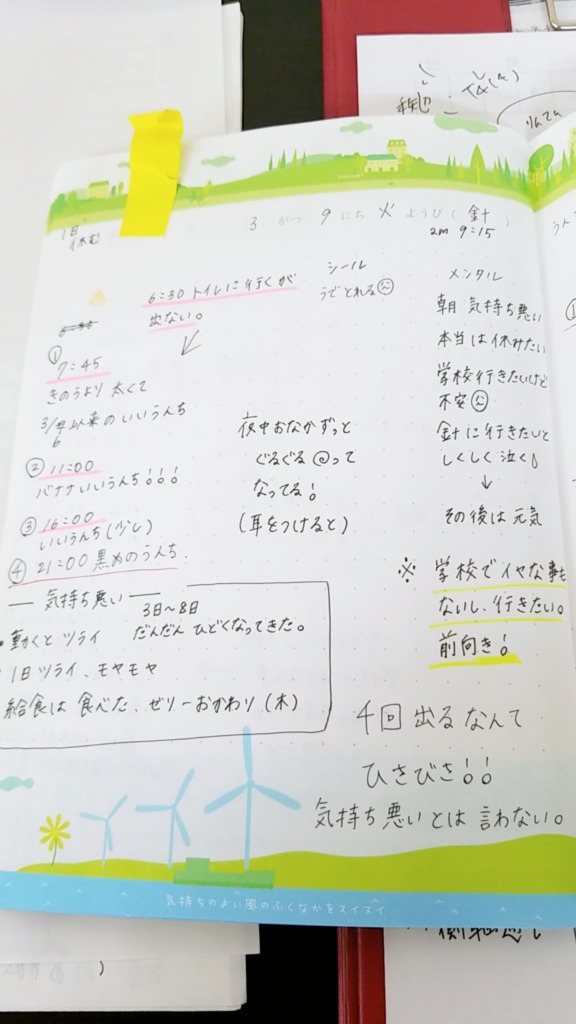 3 がつ 9 にち 火 ようび ( 針 )
am 9:15
1日
休む
6:30 トイレに行くが
出ない。
シール
うでとれる
メンタル
朝 気持ち悪い
本当は休みたい
学校行きたいけど
不安
針に行きたいと
しくしく泣く
↓
その後は元気
① 7:45
きのうより 太くて
以来の いいうんち
② 11:00
バナナいいうんち!!!
③ 16:00
いいうんち (少し)
④ 21:00 黒めのうんち
夜中おなかずっと
ぐるぐる @って
なってる!
(耳をつけると)
※ 学校でイヤな事も
ないし、行きたい。
前向き!
― 気持ち悪い ―
3日~8日
・動くと ツライ だんだん ひどくなってきた。
・1日ツライ、モヤモヤ
給食は 食べた、ゼリーおかわり (木)
4回 出る なんて
ひさびさ!!
気持ち悪い とは 言わない。
気持ちのよい風のふくなかをスイスイ